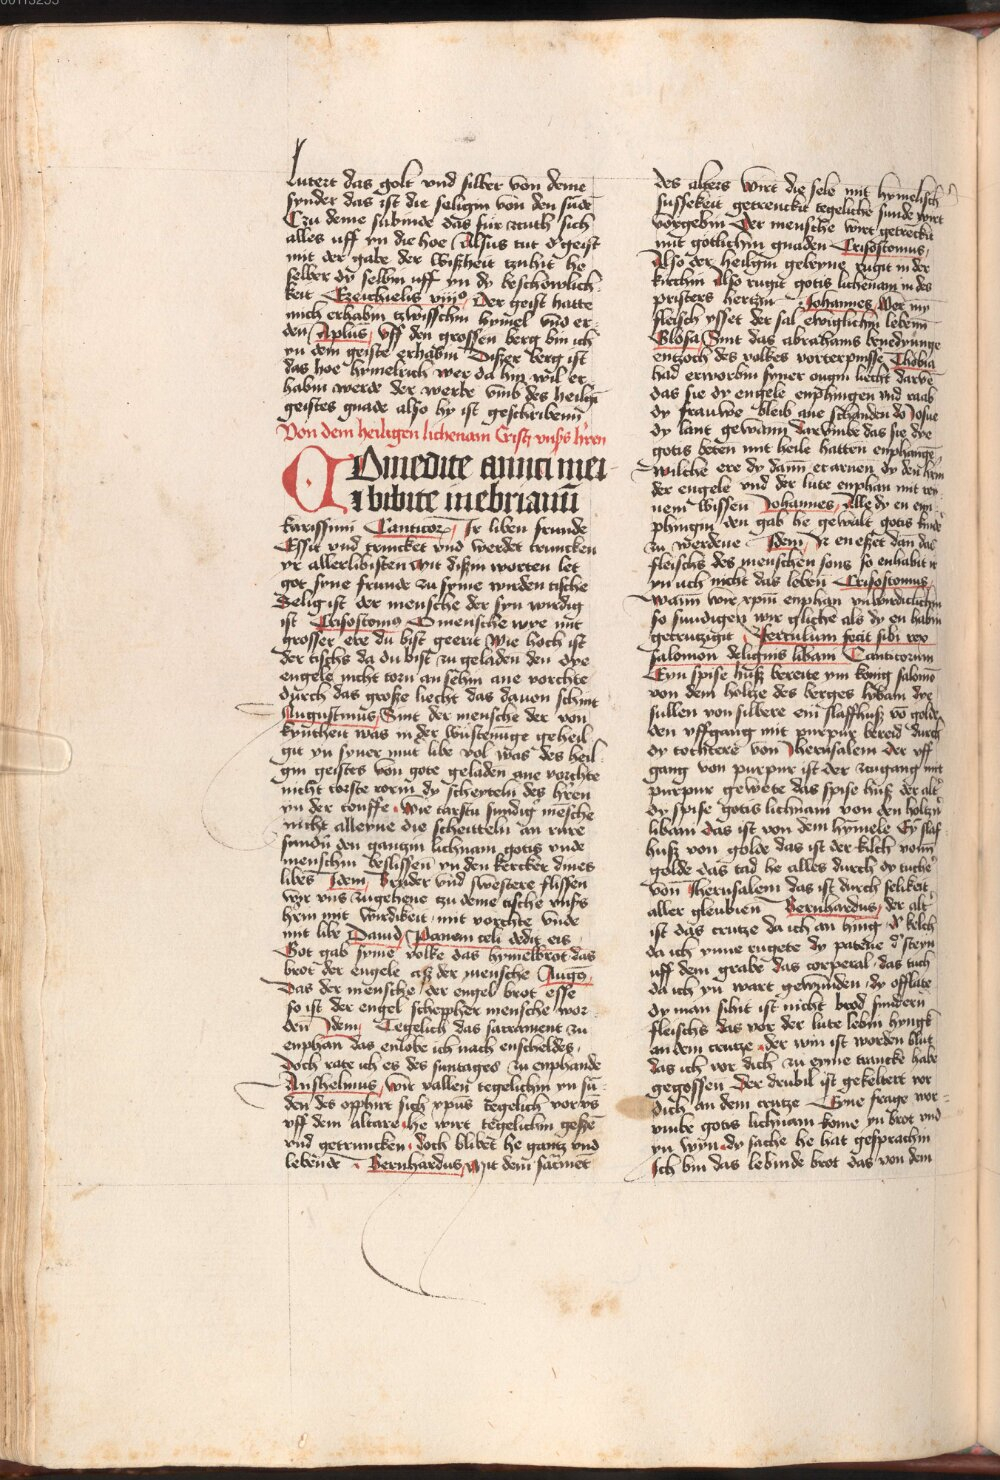 lutert das golt vnd silber von deme
synder das ist die seligin von den sude
Czu deme subinde das für zcuth sich
alles uff yn die hoe Alsus tut d geist
mit der gabe der wißheit tzuhit he
selber dy selbin uff yn dy beschowlich
keit Ezeichielis viijo Der geist hatte
mich erhabin tzwisschin hymel vnd er
den Aplus uff den grossen berg bin ich
yn dem geiste erhabin Disser berg ist
das hoe hymelrich wer da hin wil er
habin werde der werbe vmb des heilgin
geistes gnade also hy ist geschribenn
Von dem heiligen lichenam Cristi vnßs hren
Comedite amici mei
et bibite inebriamini
karissimi Canticor Ir liben frunde
Essit vnd trincket vnd werdet truncken
yr allerlibisten Mit dißin worten let
got syne frunde zu syme wirden tische
Selig ist der mensche der syn wirdig
ist Crisostomus O mensche wye mit
grosser ere du bist geerit Wie hoch ist
der tischs da du bist zu geladen den dye
engele nicht torn an sehin ane vorchte
durch das große liecht das davon schint
Augustinus Sint der mensche der von
kyntheit was in der wustenunge geheil
git yn syner mut libe vol was des heil
gin geistes von gote geladen ane vorchte
nicht torste rorin dy scheyteln des hren
yn der touffe Wie tarstu sundigr mesche
nicht alleyne die scheitteln an rure
sundn den gangin lichnam gotis vnde
menschin beslissen yn den kercker dines
libes Idem Bruder vnd swestere flissen
wyr vns zugehene tzu deme tische vnßs
hrin mit wirdikeit mit vorchte vnde
mit libe Dauid Panem celi dedit eis
Got gab syme volke das hymelbrot das
brot der engele aß der mensche Augo
Das der mensche der engel brot esse
so ist der engel schepher mensche wor
den Idem Tegelich das sacrament zu
enphan das enlobe ich nach enscheldes
Doch rate ich es des suntages zu enphande
Anshelmus wir vallen tegelichin yn su
den des opphirt sich xpus tegelich vor vs
uff dem altare he wirt tegelichin geße
vnd getruncken doch blibet he gantz vnd
lebende Bernhardus Mit dem sacmet
des alters wirt die sele mit hymelisch
sussekeit getrenckit tegeliche sunde wirt
vorgebin Der mensche wirt getreckit
mit gotlichin gnaden Crisostomus
Also der heiligin gebeyne rugit in der
kirchin Also rugit gotis lichenam in des
pristers hertzin Johannes Wer myn
fleisch ysset der sal ewiglichin lebenn
Glosa Sint das abrahams benedyunge
entzoch des volkes vorterpnisse Thobia
had erworbin syner ougin liecht darvmb
das sie dy engele enphingen vnd raab
dy frauwe bleib ane schanden do Josue
dy lant gewann darvmbe das sie dye
gotis beten mit heile hatten enphange
Wilche ere dy dann erarnen dy den hrin
der engele vnd der lute enphan mit rey
nem wissen Johannes Alle dy en em
phingin den gab he gewalt gotis kind
zu werdene Idem Ir en esset dan das
fleischs des menschen sons so enhabit ir
yn uch nicht das leben Crisostomus
Wann wir xpm enphan vnwirdiclichin
so sundigen wir gliche als dy en habin
getrutzigit Ferculum fecit sibi rex
salomon delignis libani Canticorum
Eyn spise huß bereite ym konig salomo
von dem holtze des berges lybani dye
sullen von silbere ein slaffhuß vo golde
den uffgang mit purpur bereid durch
dy tochtere von Jherusalem der uff
gang von purpur ist der zugang mit
purpur gewete das spise huß der altr
dy spise gotis lichnam von den holtzin
libani das ist von dem hymele Ey slaf
huß von golde das ist der kilch vonn
golde das tad he alles durch dy tuchtr
von Jherusalem das ist durch selikeit
aller gleubien Bernhardus der altr
ist das crutze da ich an hing dr kelch
da ich ynne rugete dy patene dr steyn
uff dem grabe das corperal das tuch
da ich yn wart gewunden dy offlate
dy man sihit ist nicht brod sundern
fleischs das vor der lute lebin hyngk
an dem crutze der win ist worden blut
das ich vor dich zu eyme trancke habe
gegossen Der drubil ist gekeltert vor
dich an dem crutze Eyne frage wor
vmbe gotis lichnam kome yn brot vnd
yn wyn dy sache he hat gesprachin
Ich bin das lebinde brot das von dem